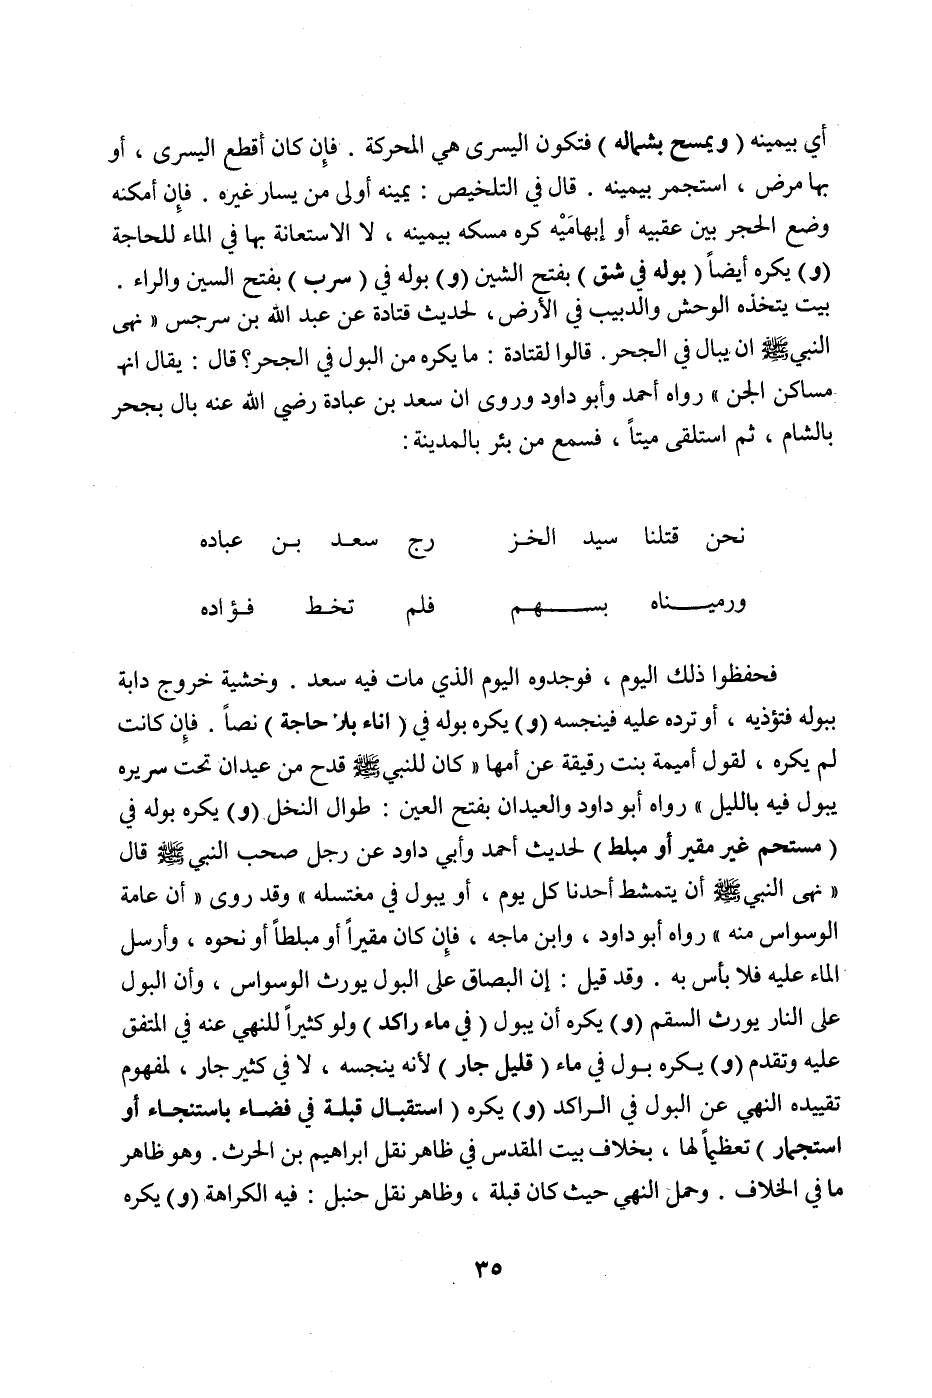 أي بيمينه ( ويمسح بشماله ) فتكون اليسرى هي المحركة . فإن كان أقطع اليسرى ، أو
بها مرض ، استجمر بيمينه . قال في التلخيص : يمينه أولى من يسار غيره . فإن أمكنه
وضع الحجر بين عقبيه أو إبهامَيْه كره مسكه بيمينه ، لا الاستعانة بها في الماء للحاجة
(و) يكره أيضاً ( بوله في شق ) بفتح الشين (و) بوله في ( سرب ) بفتح السين والراء .
بيت يتخذه الوحش والدبيب في الأرض، لحديث قتادة عن عبد الله بن سرجس « نهى
النبي ﷺ ان يبال في الجحر. قالوا لقتادة : ما يكره من البول في الجحر؟ قال : يقال انها
مساكن الجن » رواه أحمد وأبو داود وروى ان سعد بن عبادة رضي الله عنه بال بجحر
بالشام ، ثم استلقى ميتاً ، فسمع من بئر بالمدينة :
نحن قتلنا سيد الخز رج سعد بن عباده
ورميناه بسهم فلم تخط فؤاده
فحفظوا ذلك اليوم ، فوجدوه اليوم الذي مات فيه سعد . وخشية خروج دابة
ببوله فتؤذيه ، أو ترده عليه فينجسه (و) يكره بوله في ( اناء بلا حاجة ) نصاً . فإن كانت
لم يكره ، لقول أميمة بنت رقيقة عن أمها « كان للنبي ﷺ قدح من عيدان تحت سريره
يبول فيه بالليل » رواه أبو داود والعيدان بفتح العين : طوال النخل (و) يكره بوله في
( مستحم غير مقير أو مبلط ) لحديث أحمد وأبي داود عن رجل صحب النبي ﷺ قال
« نهى النبي ﷺ أن يتمشط أحدنا كل يوم ، أو يبول في مغتسله » وقد روى « أن عامة
الوسواس منه » رواه أبو داود ، وابن ماجه ، فإن كان مقيراً أو مبلطاً أو نحوه ، وأرسل
الماء عليه فلا بأس به . وقد قيل : إن البصاق على البول يورث الوسواس ، وأن البول
على النار يورث السقم (و) يكره أن يبول ( في ماء راكد ) ولو كثيراً للنهي عنه في المتفق
عليه وتقدم (و) يكره بول في ماء ( قليل جار ) لأنه ينجسه ، لا في كثير جار ، لمفهوم
تقييده النهي عن البول في الراكد (و) يكره ( استقبال قبلة في فضاء باستنجاء أو
استجمار ) تعظيماً لها ، بخلاف بيت المقدس في ظاهر نقل ابراهيم بن الحرث. وهو ظاهر
ما في الخلاف . وحمل النهي حيث كان قبلة ، وظاهر نقل حنبل : فيه الكراهة (و) يكره
٣٥